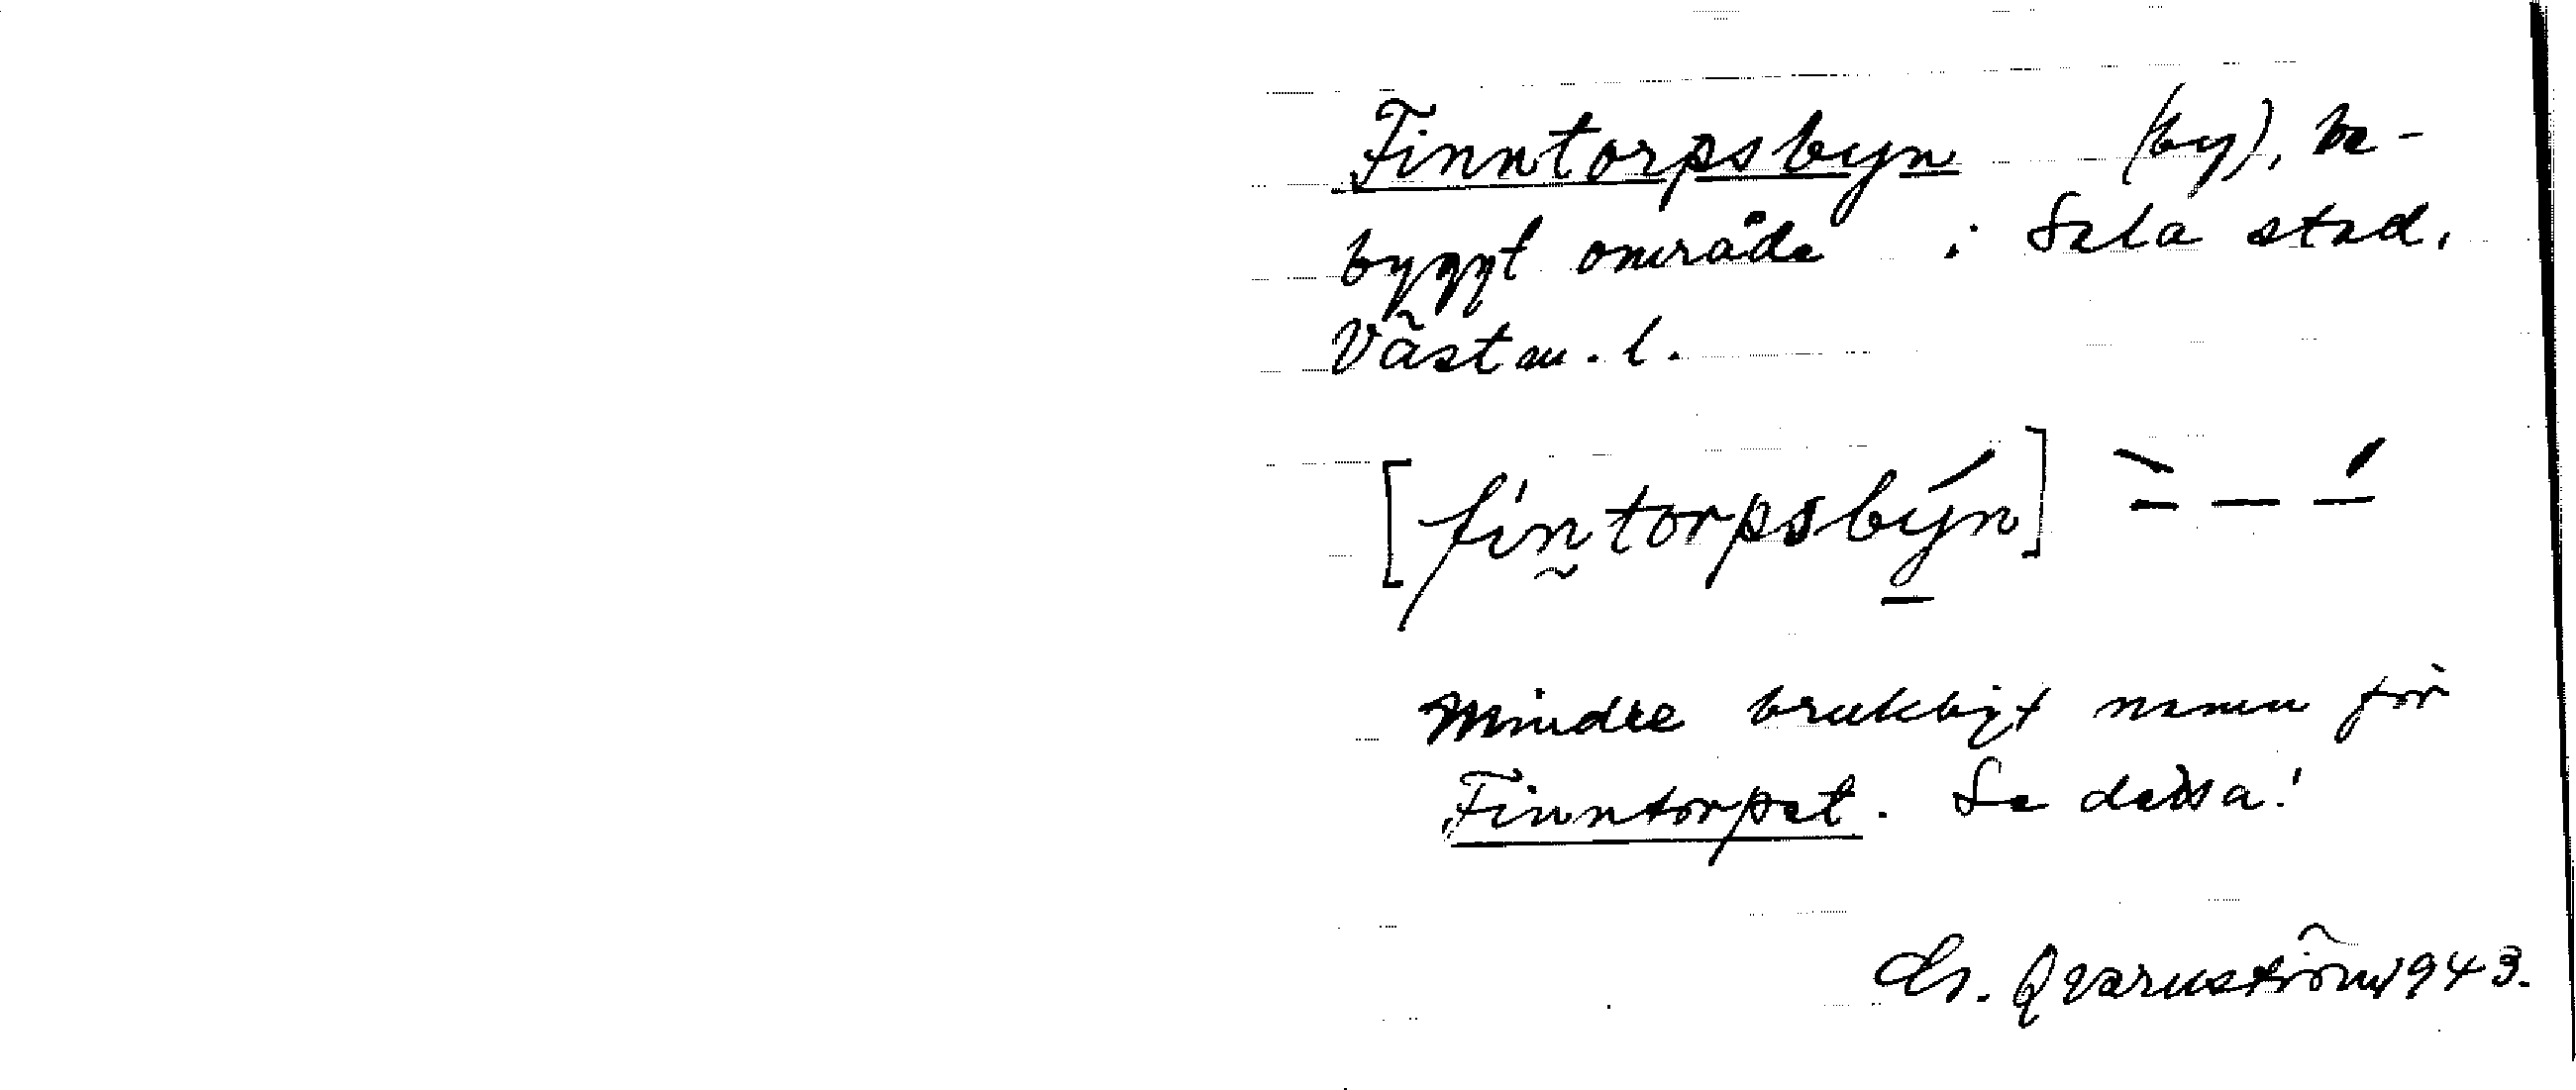 Finntorpsbyn (by), be-
byggt område i Sala stad,
Västm. l.
[fìn̰torpsbýn] `– – –´
Mindre brukligt namn för
Finntorpet. Se dessa!
Qvarnström 1943.